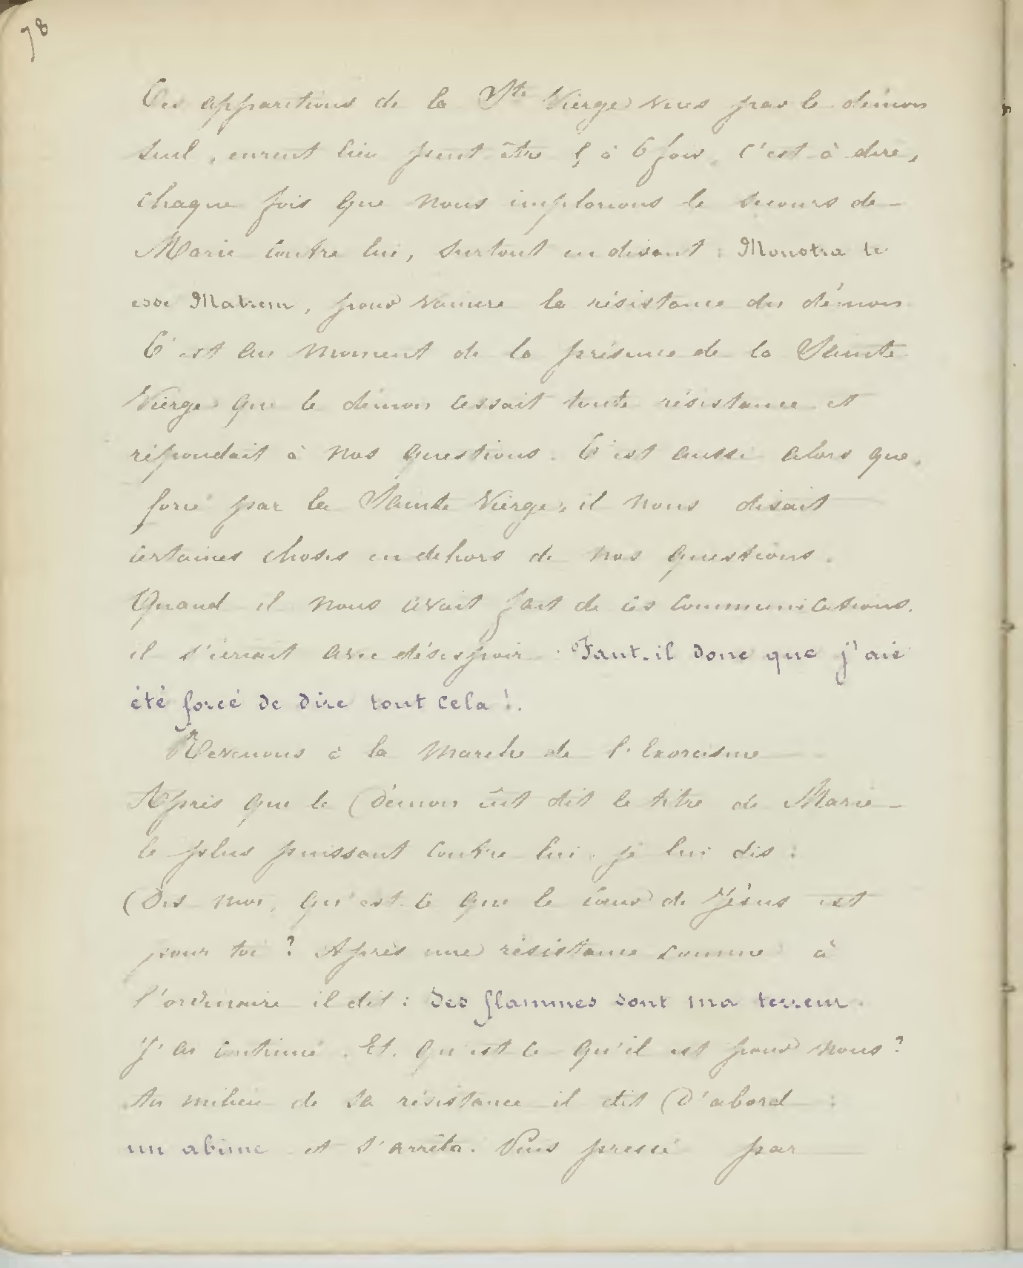 78
Ces apparitions de la Ste Vierge vues par le démon
seul, eurent lieu peut être 5 à 6 fois, c'est à dire,
chaque fois que nous implorions le secours de
Marie contre lui, surtout en disant : Monstra te
esse Matrem, pour vaincre la résistance du démon
C'est au moment de la présence de la Sainte
Vierge que le démon cessait toute résistance et
répondait à nos questions. C'est aussi alors que,
forcé par la Sainte Vierge, il nous disait
certaines choses en dehors de nos questions.
Quand il nous avait fait de ces communications,
il s'écriait avec désespoir : Faut-il donc que j'aie
été forcé de dire tout cela !.
Revenons à la marche de l'Exorcisme
Après que le Démon eût dit le titre de Marie
le plus puissant contre lui, je lui dis :
Dis moi, qu'est-ce que le cœur de Jésus est
pour toi ? Après une résistance comme à
l'ordinaire il dit : Ses flammes sont ma terreur.
J'ai continué. Et qu'est ce qu'il est pour nous ?
Au milieu de sa résistance il dit D'abord :
un abîme et s'arrêta. Puis pressé par